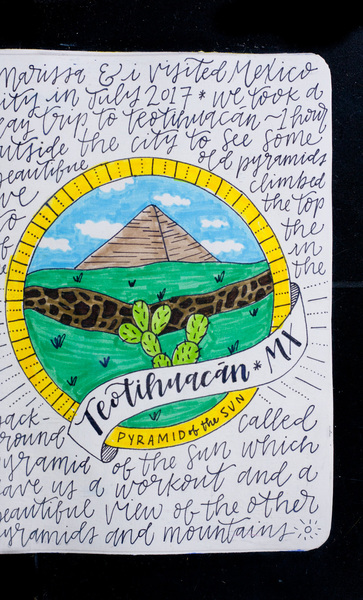 Marissa & i visited Mexico
City in July 2017 * we took a
day trip to Teotihuacán ~1 hour
outside the city to see some
beautiful old pyramids
we climbed
to the top
of the
in
the
Teotihuacán * MX
PYRAMID of the SUN
back-
ground called
pyramid of the Sun which
gave us a workout and a
beautiful view of the other
pyramids and mountains